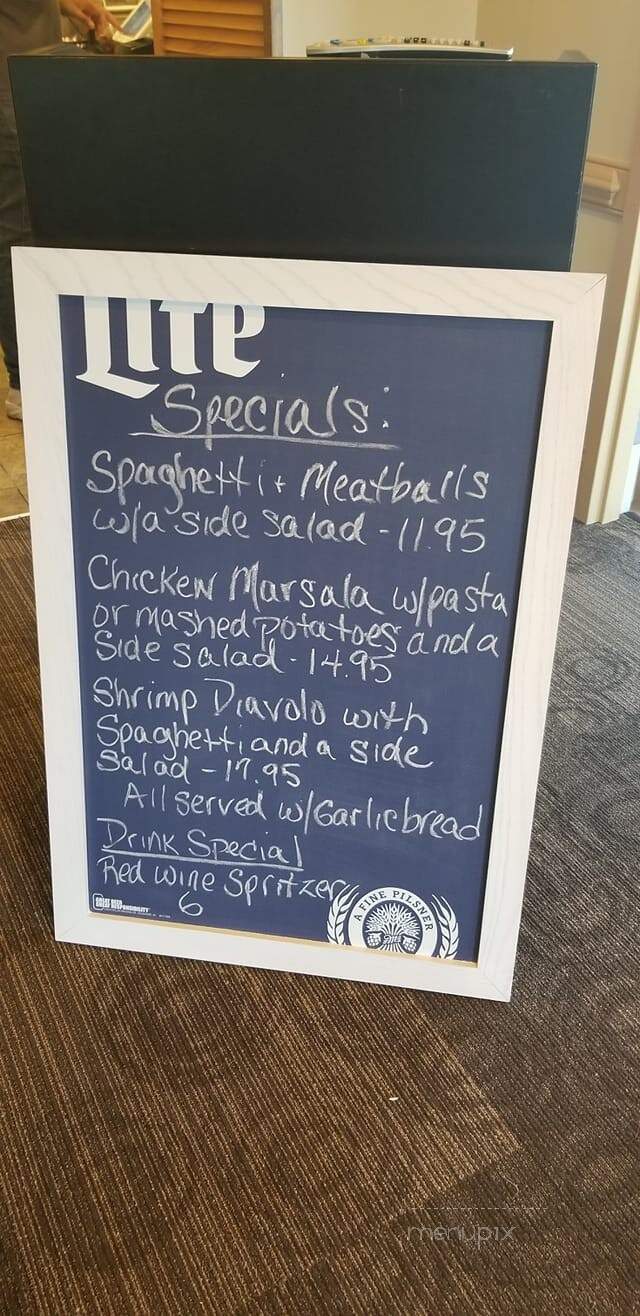 Lite
Specials:
Spaghetti + Meatballs
w/a side salad - 11.95
Chicken Marsala w/pasta
or mashed potatoes and a
Side salad - 14.95
Shrimp Diavolo with
Spaghetti and a side
salad - 17.95
All served w/Garlic bread
Drink Special
Red wine Spritzer
6
A FINE PILSNER
GREAT BEER
GREAT RESPONSIBILITY
menupix